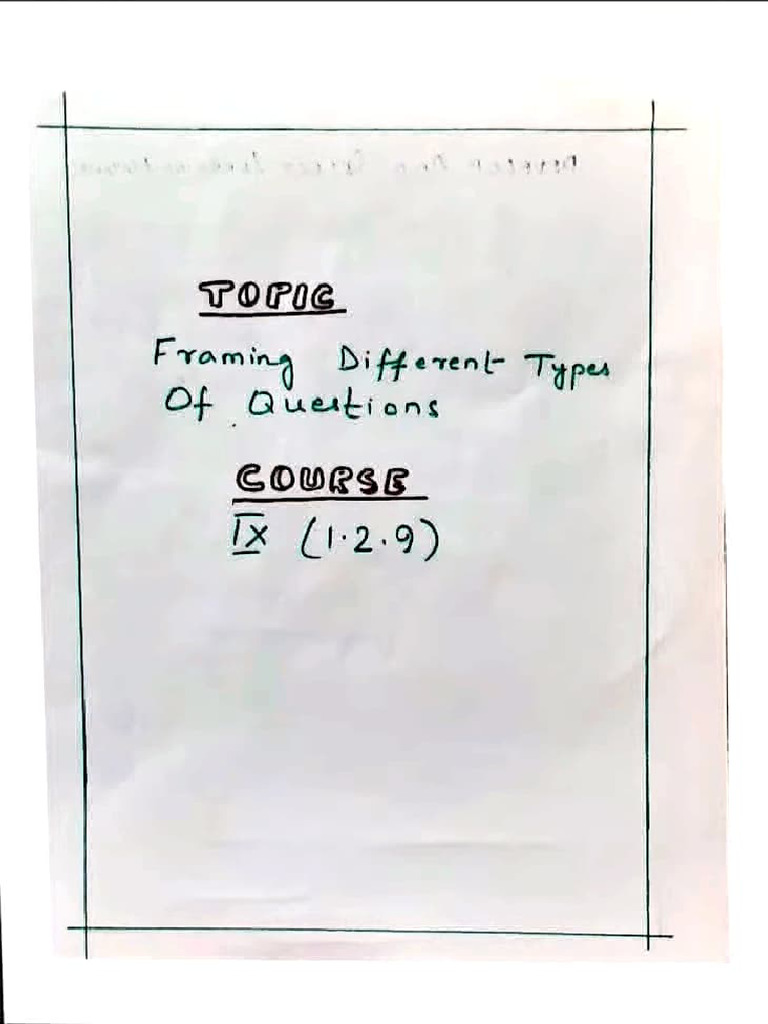 TOPIC
Framing Different Types
Of Questions
COURSE
IX (1.2.9)